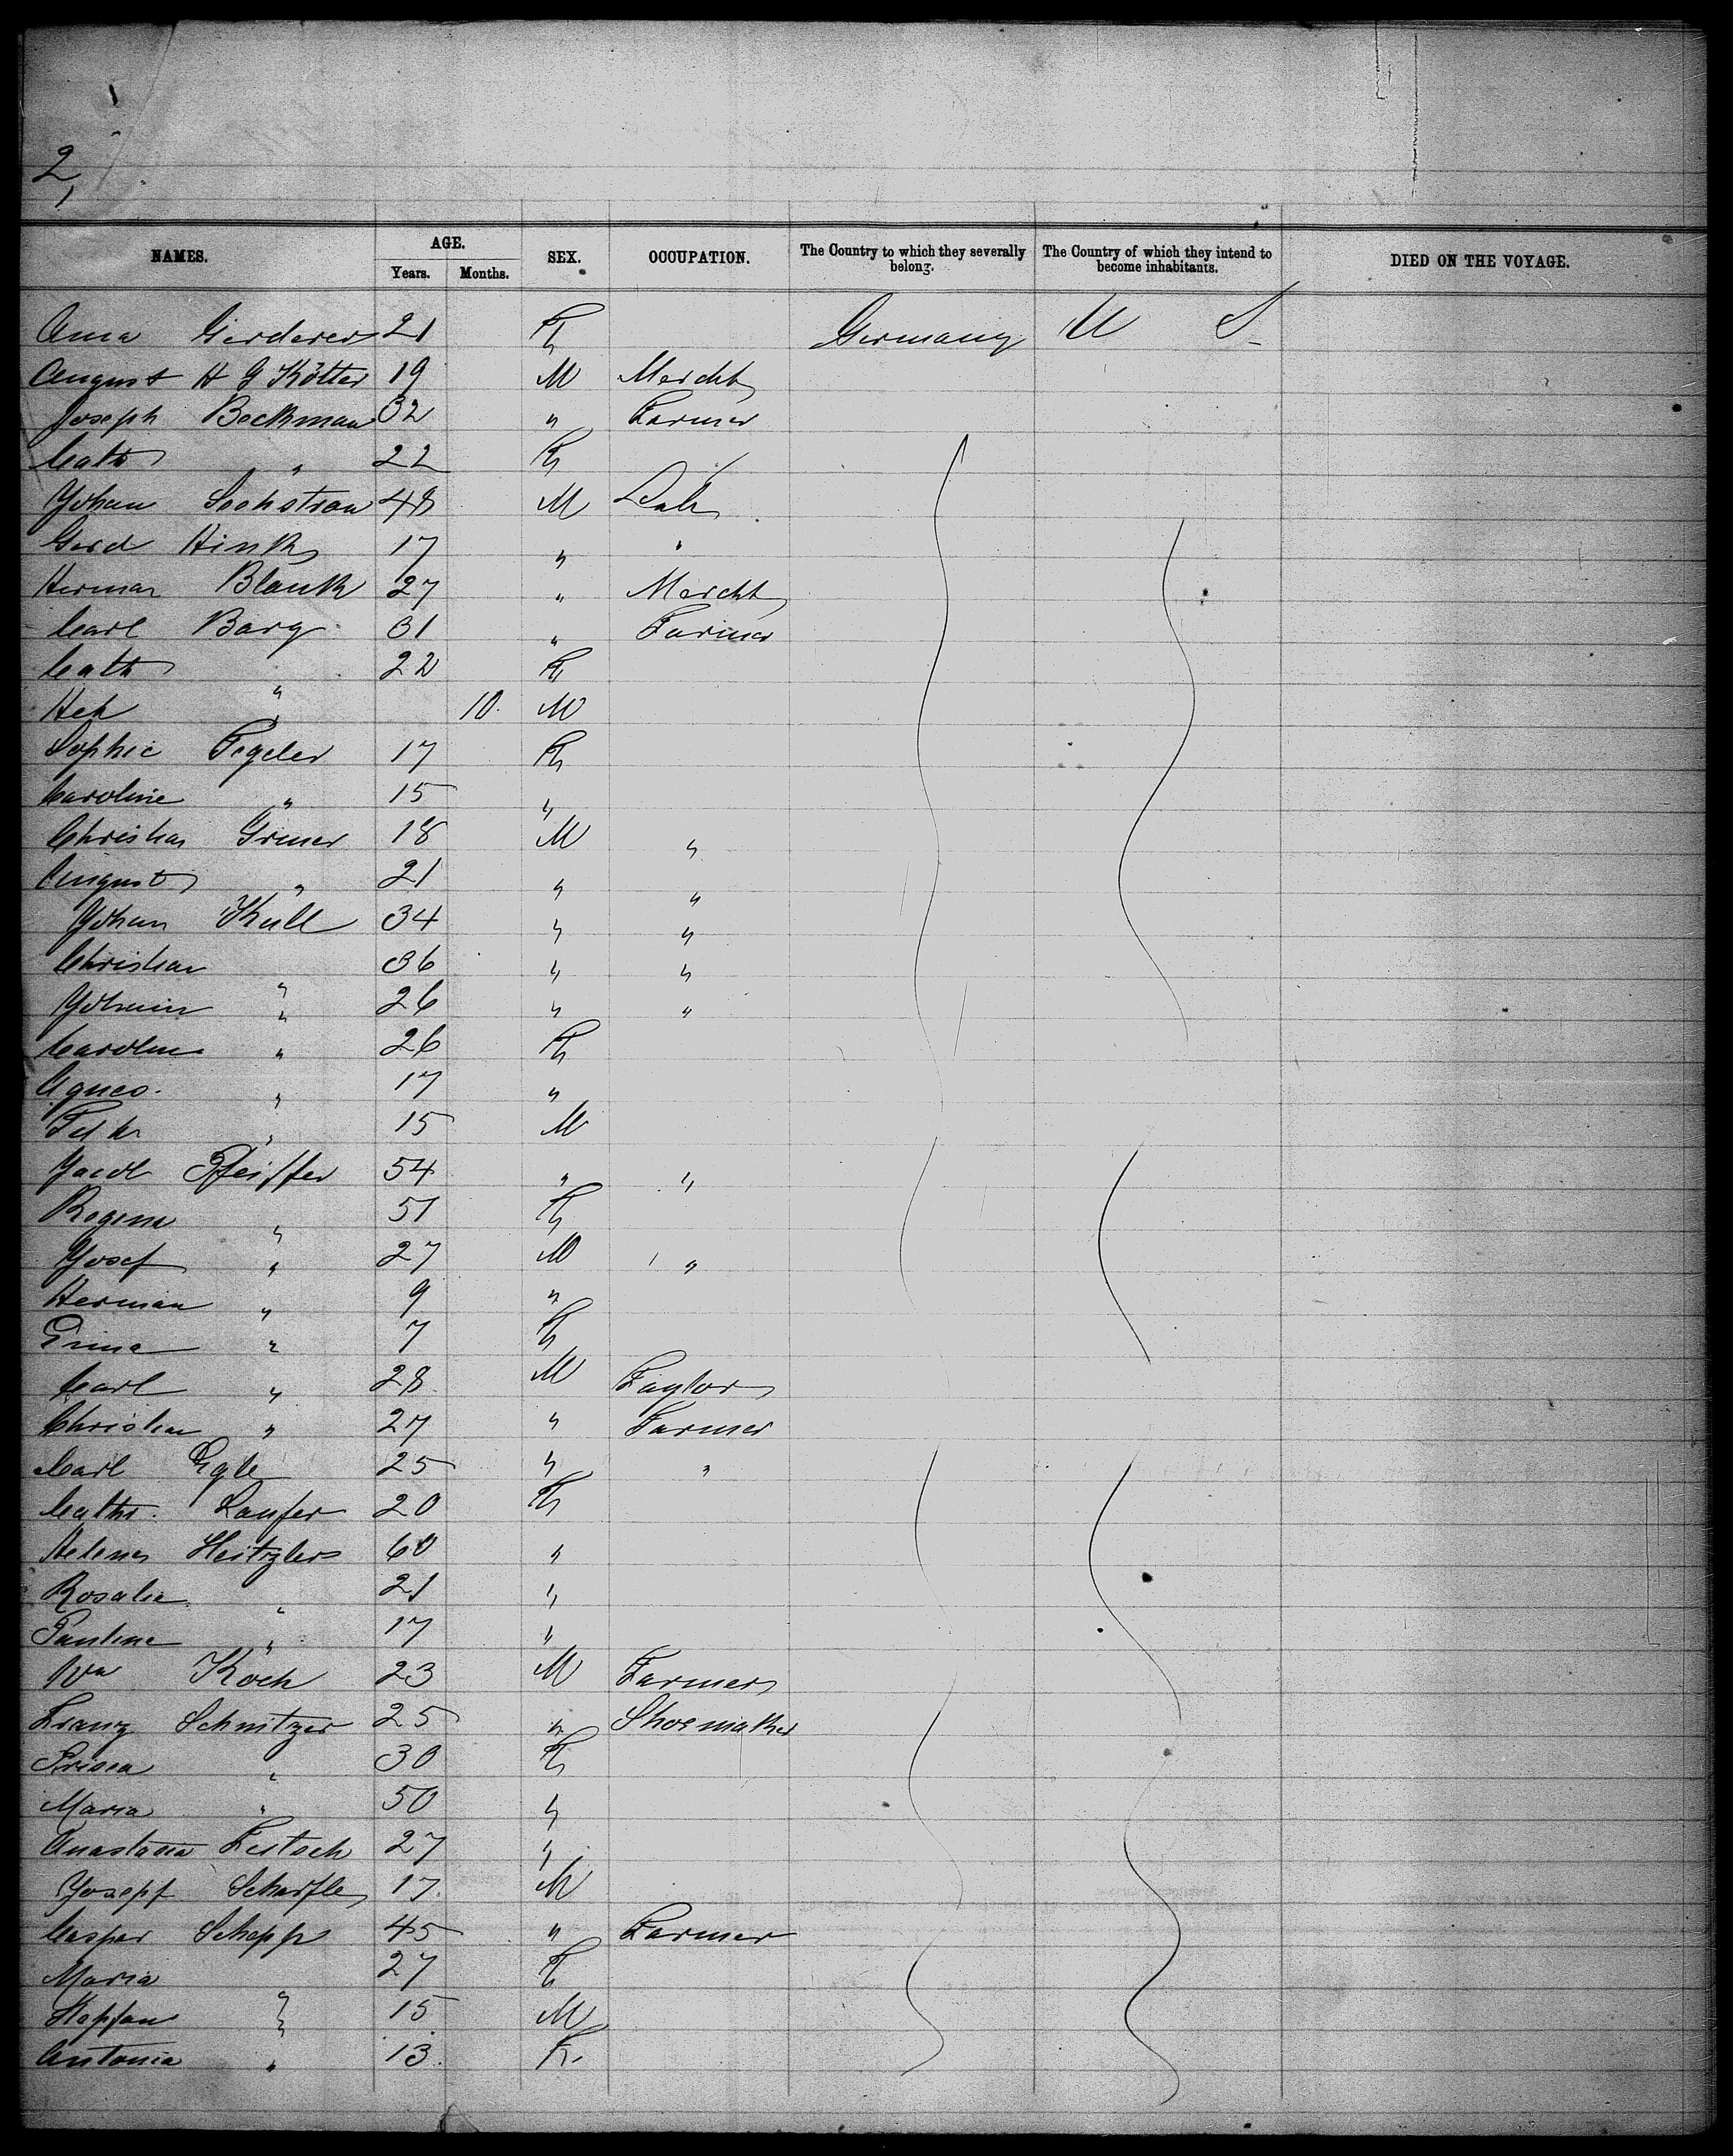 2
NAMES. AGE. Years. Months. SEX. OCCUPATION. The Country to which they severally belong. The Country of which they intend to become inhabitants. DIED ON THE VOYAGE.
Anna 21 F Germany U S
August H G Kötter 19 M Mercht
Joseph Beckman 32 " Farmer
Cath " 22 F
Johan 48 M Lab
Gerd Hink 17 " "
Herman Blank 27 " Mercht
Carl Barg 31 " Farmer
Cath " 22 F
Hch " 10 M
Sophie Tegeler 17 F
Caroline " 15 "
Christian Grimer 18 M "
August " 21 " "
Johan Kull 34 " "
Christian " 36 " "
Johann " 26 " "
Caroline " 26 F
Agnes " 17 "
" 15 M
Jacob Pfeiffer 54 " "
Regena " 51 F
Josef " 27 M "
Herman " 9 "
" 7 F
Carl " 28 M Taylor
Christian " 27 " Farmer
Carl Egle 25 " "
Cathr. Laufer 20 F
Helena Heitzler 60 "
Rosalie " 21 "
Pauline " 17 "
Wm Koch 23 M Farmer
Franz Schnitzer 25 " Shoemaker
" 30 F
Maria " 50 "
Anastasia 27 "
Josepf Scharfle 17 M
Caspar Schepp 45 " Farmer
Maria " 27 F
Stepfan " 15 M
Antonia " 13 F